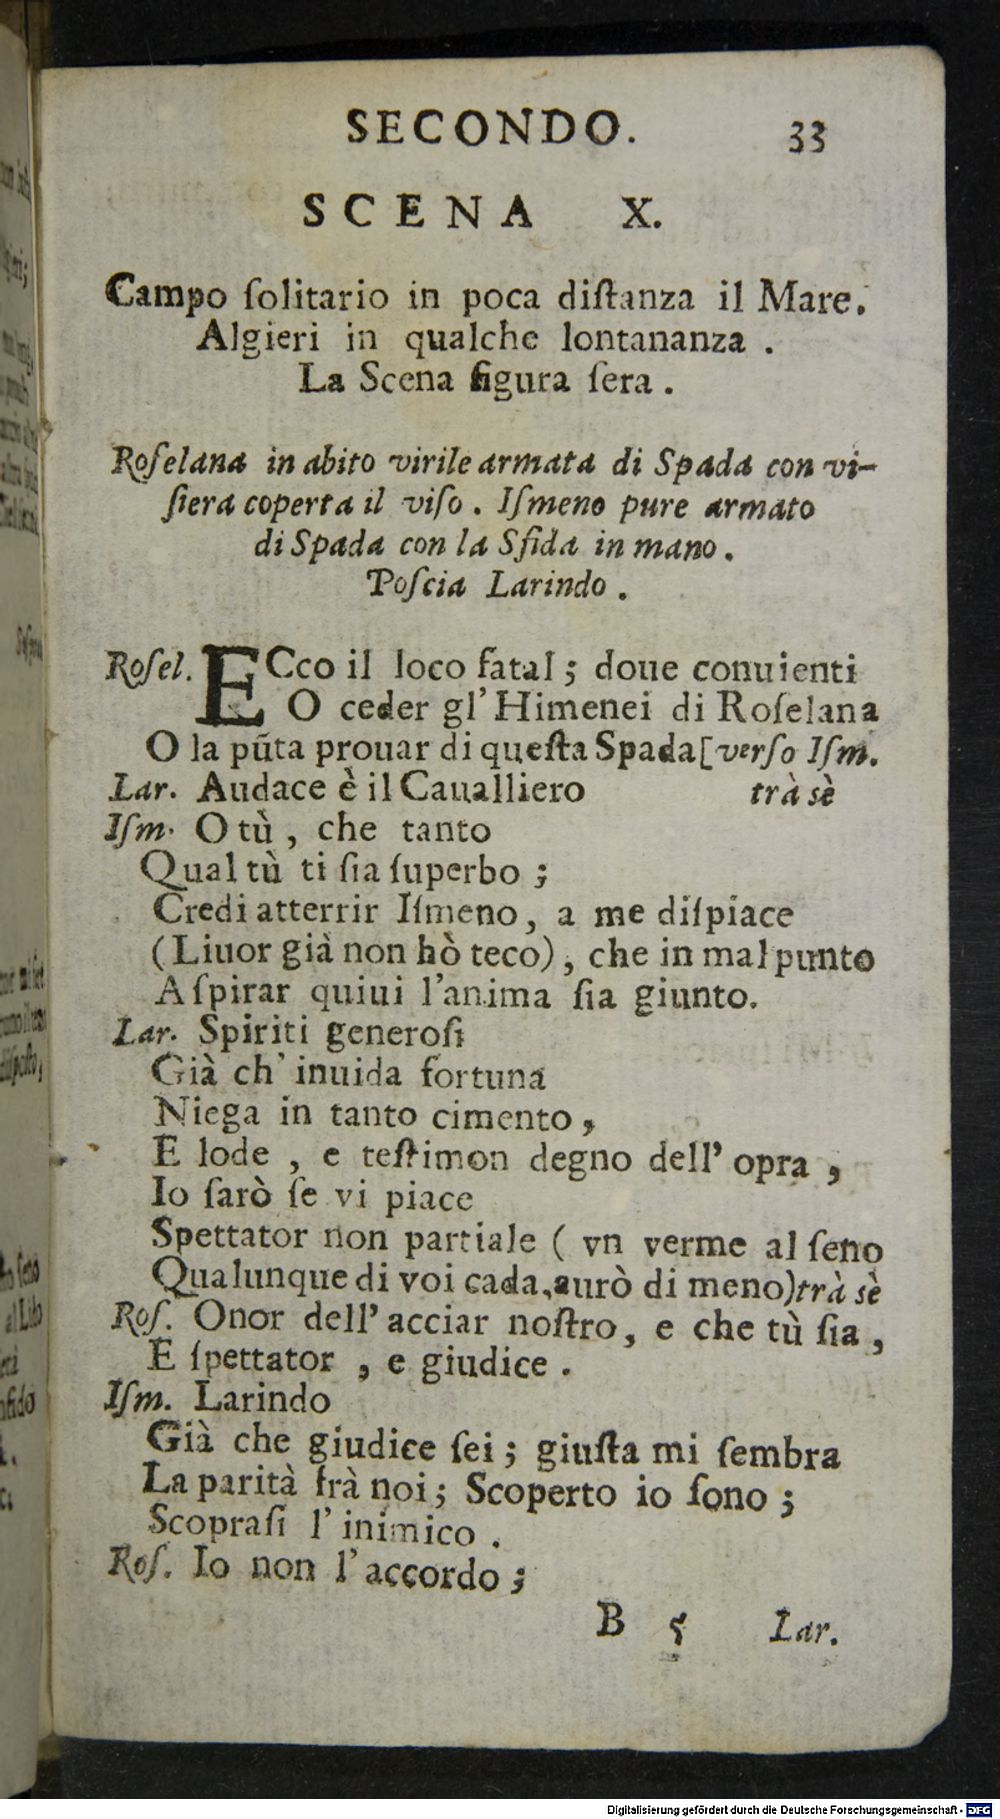 SECONDO. 33
SCENA X.
Campo ſolitario in poca diſtanza il Mare.
Algieri in qualche lontananza .
La Scena figura ſera .
Roſelana in abito virile armata di Spada con vi-
ſiera coperta il viſo . Iſmeno pure armato
di Spada con la Sfida in mano .
Poſcia Larindo .
Roſel. ECco il loco fatal ; doue conuienti
O ceder gl' Himenei di Roſelana
O la pũta prouar di queſta Spada [verſo Iſm.
Lar. Audace è il Caualliero trà sè
Iſm. O tù , che tanto
Qual tù ti ſia ſuperbo ;
Credi atterrir Iſmeno, a me diſpiace
(Liuor già non hò teco), che in mal punto
A ſpirar quiui l'anima ſia giunto.
Lar. Spiriti generoſi
Già ch' inuida fortuna
Niega in tanto cimento ,
E lode , e teſtimon degno dell' opra ,
Io ſarò ſe vi piace
Spettator non partiale ( vn verme al ſeno
Qualunque di voi cada, aurò di meno) trà sè
Roſ. Onor dell' acciar noſtro, e che tù ſia ,
E ſpettator , e giudice .
Iſm. Larindo
Già che giudice ſei ; giuſta mi ſembra
La parità frà noi ; Scoperto io ſono ;
Scopraſi l' inimico .
Roſ. Io non l' accordo ;
B 5 Lar.
Digitalisierung gefördert durch die Deutsche Forschungsgemeinschaft - DFG